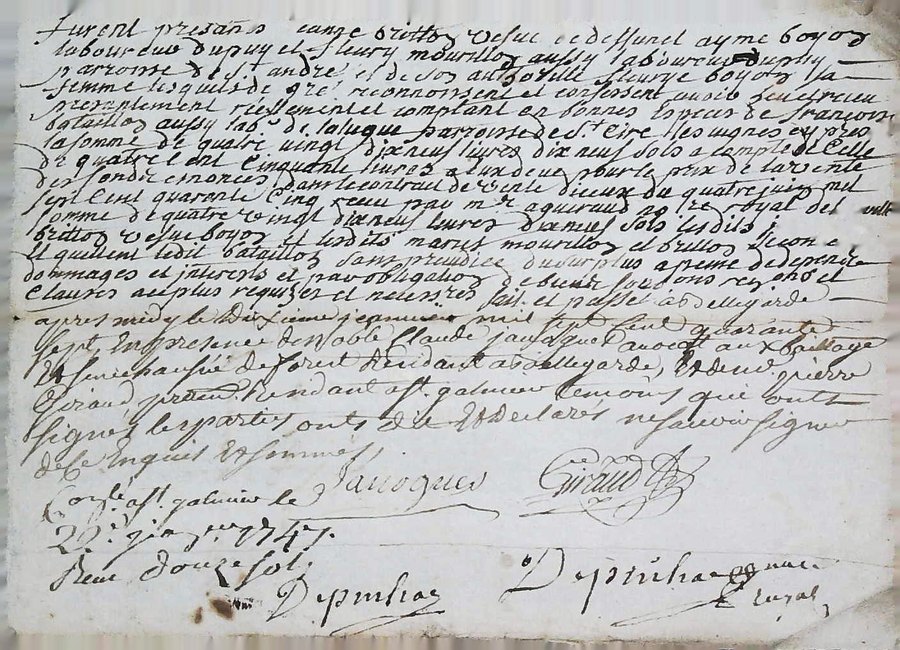 furent presans eanne britton vesue de deffunct ayme boyon
laboureur dupuy et fleury mourillon aussy laboureur dupuy
parroisse de st andré et de son authorité fleurye boyon sa
femme lesquels de gré reconnoissent et confessent avoir heu et receu
presentement reellement et comptant en bonnes especes de françois
bataillon aussy lab.r de laluque parroisse de St Cire les vignes cy pres
la somme de quatre vingt dix neuf livres dix neuf sols a compte de celle
de quatre cent cinquante livres a eux deue pour le prix de la vente
des fonds enoncés dans le contract de vente d'iceux du quatre juin mil
sept cent quarante cinq receu par mr aguiraud no.re royal
somme de quatre vingt dix neuf livres dix neuf sols lesdits
britton vesue boyon et lesdits mariés mourillon et
et quittent ledit bataillon sans prejudice du surplus a peine de depens
dommages et interests et par obligation de biens soumons renons et
clauses au plus requises et necess.res fait et passé a Bellegarde
apres midy le dixieme jeanvier mil sept cent quarante
sept En presence de noble Claude jauogue avocat aux bailliage
Et senechaussée de forest Residant a Bellegarde, Et de me pierre
Giraud Residant a St. galmier temoins qui ont
signés les parties onts dit Et Declarés ne scavoir signer
de ce Enquis Et sommés
Conlé a St. galmier le Jauogues Giraud
20e janver 1747.
Receu douze sols
Depinhac Depinhac
royal